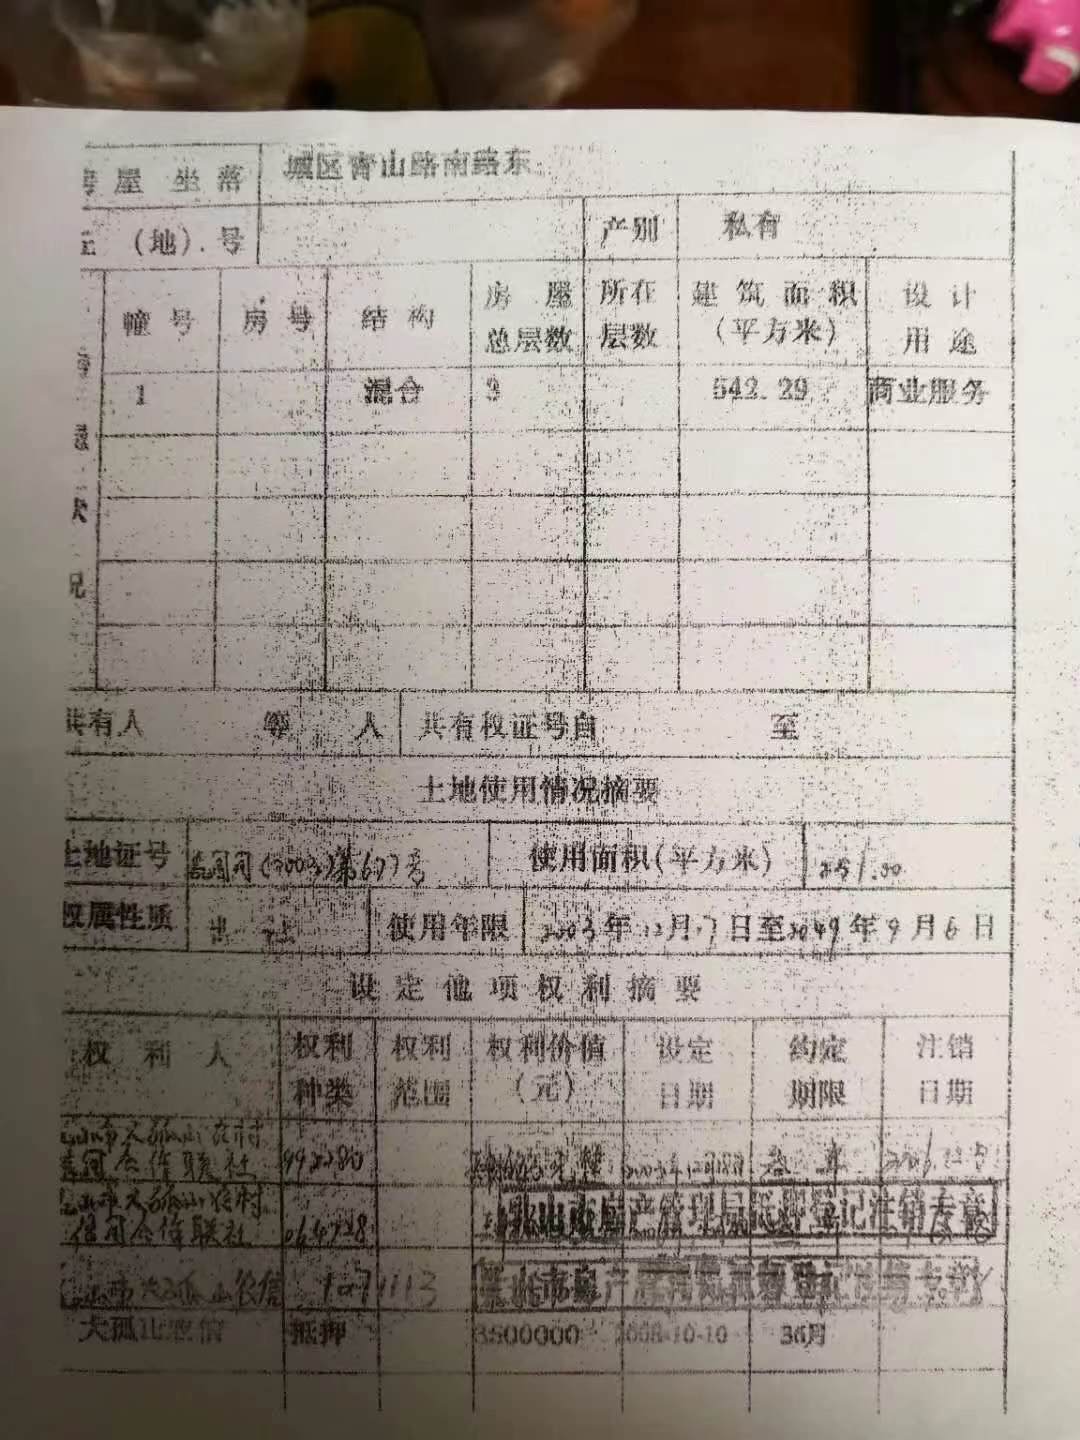 屋 坐 落 城区青山路南路东
(地).号 产别 私有
幢 号 房 号 结 构 房 屋 总层数 所在 层数 建 筑 面 积 (平方米) 设 计 用 途
1 混合 3 542.29 商业服务
况
共有人 等 人 共有权证号自 至
土地使用情况摘要
土地证号 使用面积(平方米)
权属性质 出 使用年限 2003年12月17日至2049年9月6日
设 定 他 项 权 利 摘 要
权 利 人 权利 种类 权利 范围 权利价值 (元) 设定 日期 约定 期限 注销 日期
山市大孤山农村
信用合作联社 992280 2003年12月18日 叁 年
山市大孤山农村
信用合作联社 064728 乳山市房产管理局抵押登记注销专章
市大孤山农信 1071113
大孤山农信 抵押 3500000 2008-10-10 36月